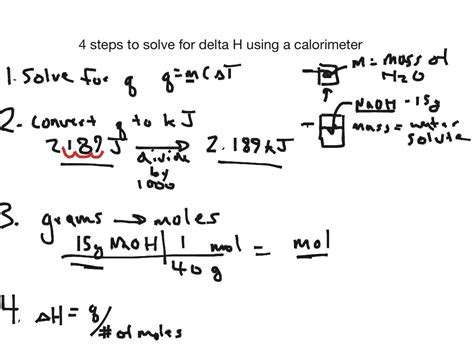 4 steps to solve for delta H using a calorimeter
1. Solve for q q=mCΔT
M = mass of
H2O
NaOH - 15g
mass = water
solute
2. Convert q to kJ
2189 J → 2.189 kJ
divide
by
1000
3. grams → moles
15g NaOH | 1 mol = mol
40 g
4. ΔH = q/
# of moles